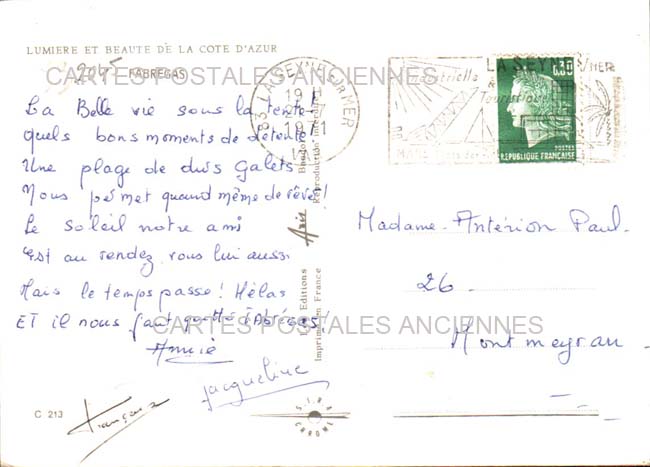 LUMIERE ET BEAUTE DE LA COTE D'AZUR
2045
FABREGAS
CARTES POSTALES ANCIENNES
La Belle vie sous la tente!
Quels bons moments de détente!
Une plage de durs Galets
Nous permet quand même de rêver!
Le soleil notre ami
Est au rendez vous lui aussi
Mais le temps passe! Hélas
ET il nous faut quitté FABREGAS!
Annie
Jacqueline
Françoise
C 213
83 LA SEYNE SUR MER
LA SEYNE S/MER
Industrielle
&
Touristique
0,30
POSTES
REPUBLIQUE FRANÇAISE
Reproduction interdite
Les Editions
Aris
Imprimé en France
SIRA
CHROME
Madame Antérion Paul.
26.
Montmeyran.
CARTES POSTALES ANCIENNES